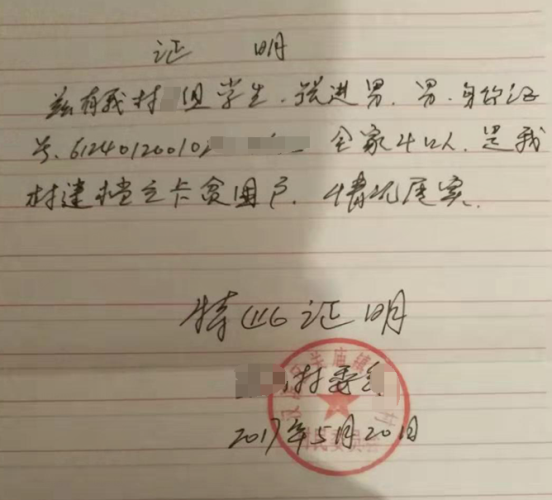 证 明
兹有我村 组学生,张进男,男,身份证
号,61240120010 全家4口人,是我
村建档立卡贫困户,情况属实。
特此证明
村委会
2017年5月20日